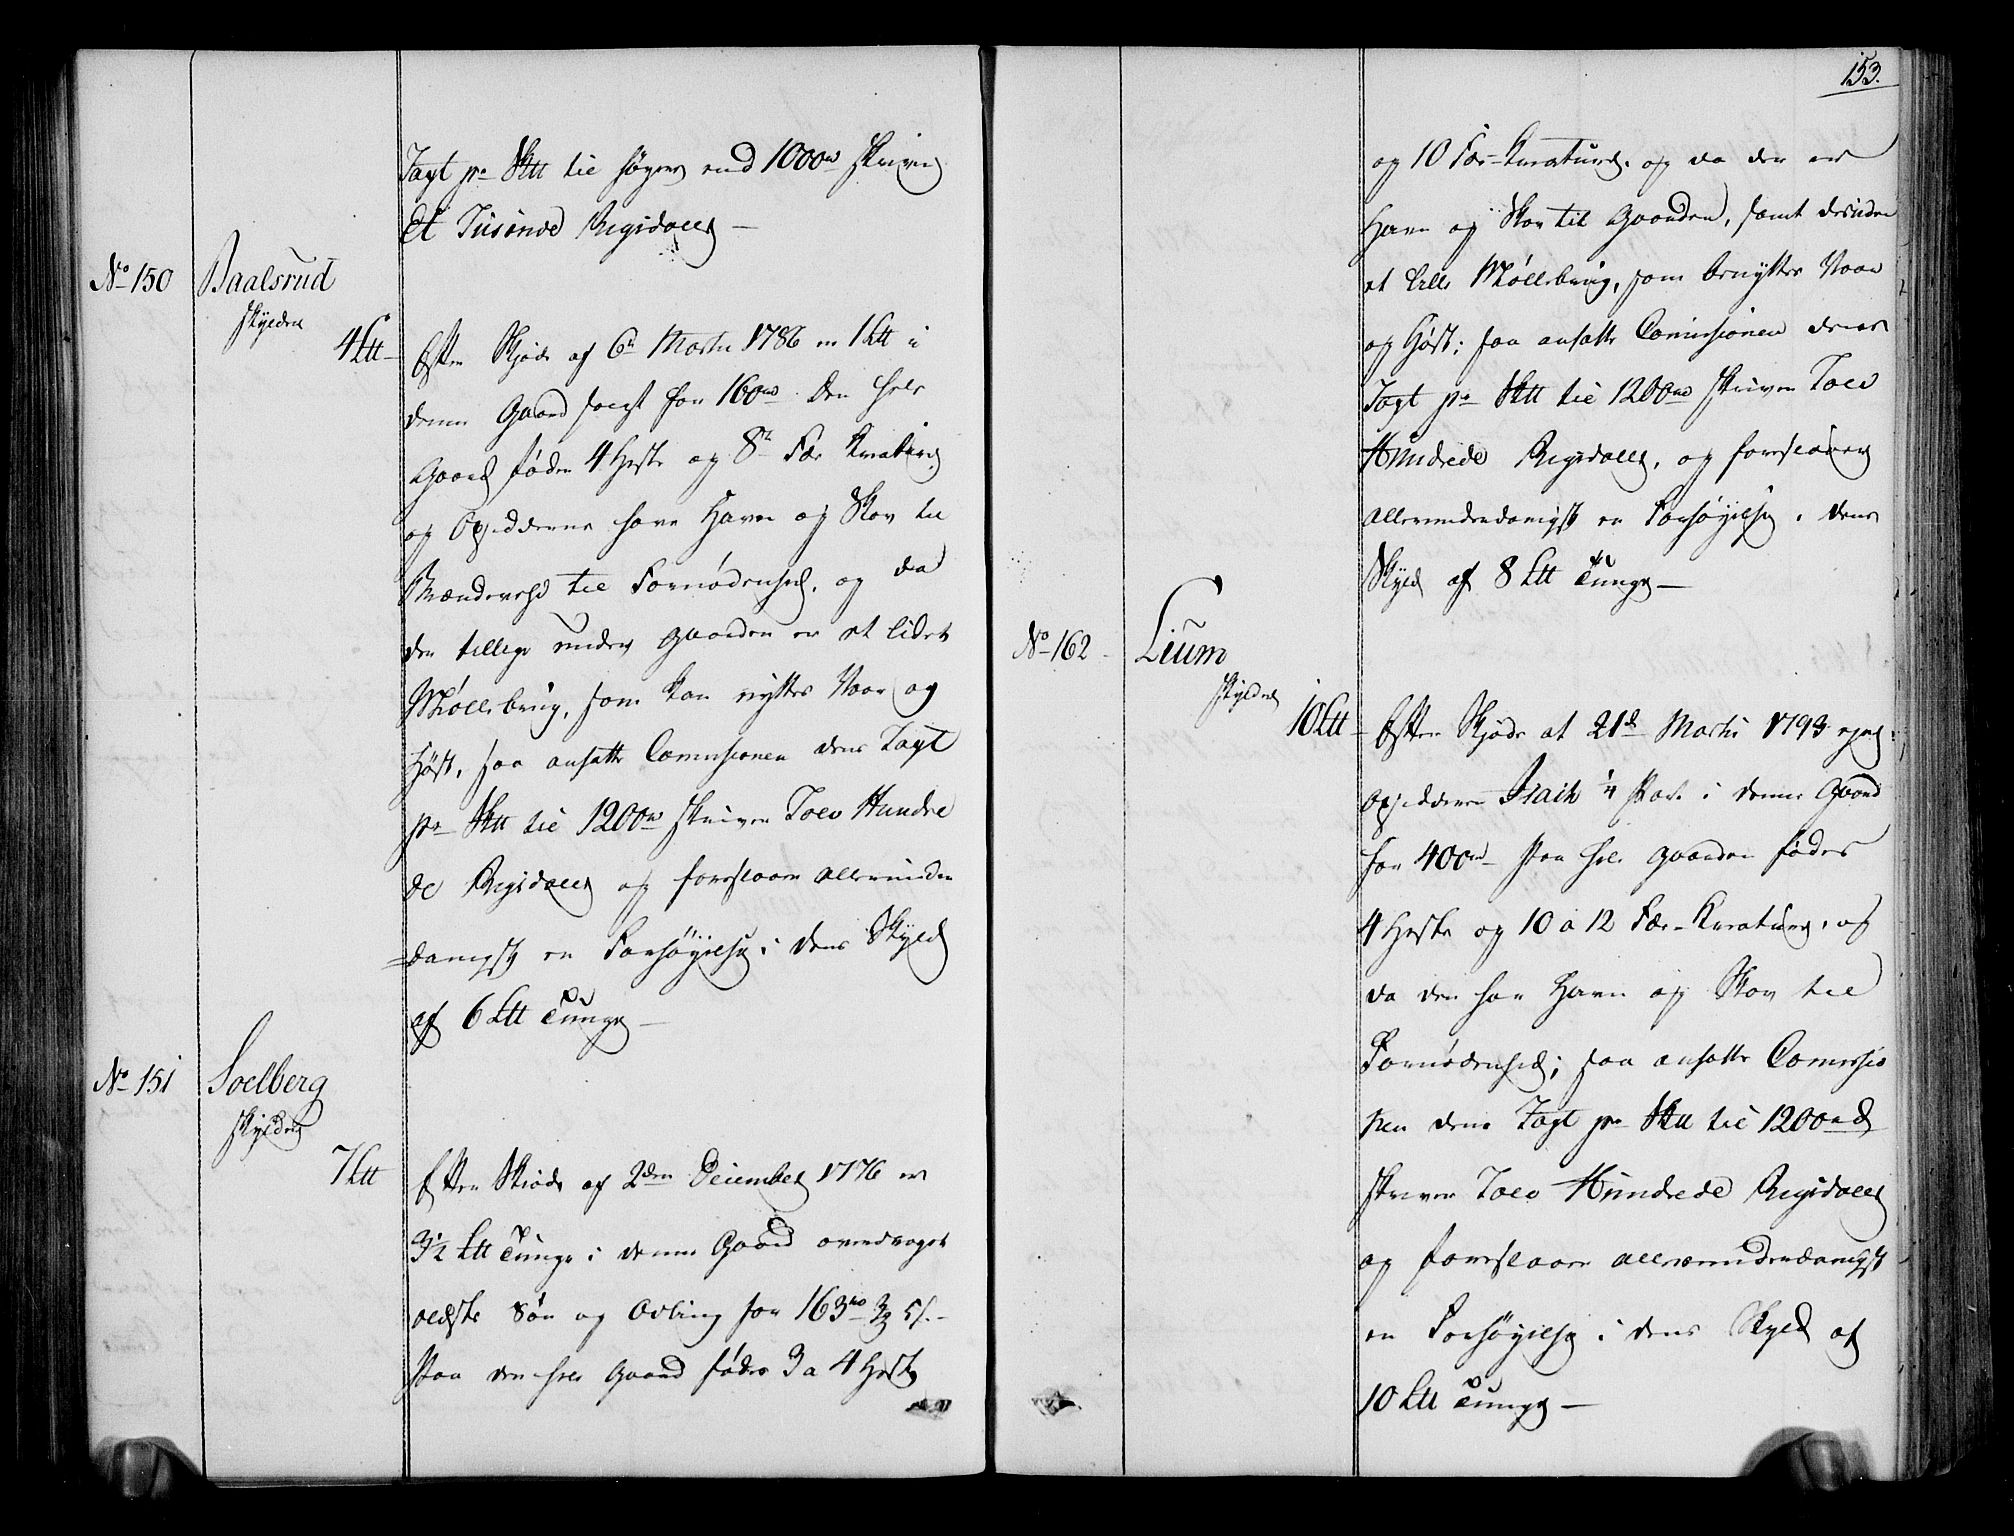 Taxt pr Sktt til høyere end 1000rd skriver
Et Tusinde Rigsdaler —
No 150
Baalsrud
skylder
4 Ltt
Efter Skjøde af 6te Martii 1786 er 1 Ltt i
denne Gaard solgt for 160rd. Den hele
Gaard føder 4 Heste og 8te Fæ Kreature,
og Opsidderne have Havn og Skov til
Brændeved til Fornødenhed, og da
der tillige under Gaarden er et lidet
Møllebrug, som kan nyttes Vaar og
Høst, saa ansatte Comissionen dens Taxt
pr Sktt til 1200rd skriver Tolv Hundre
de Rigsdaler og foreslaaer allerunder
=danigst en Forhøyelse i dens Skyld
af 6 Ltt Tunge —
No 151
Soelberg
skylder
7 Ltt
Efter Skiøde af 2den December 1776 er
3½ Ltt Tunge i denne Gaard overdraget
ældste Søn og Odling for 163rd 3  5 s. –
Paa den hele Gaard fødes 3 a 4 Heste
153.
og 10 Fæ-Kreature, og da der er
Havn og Skov til Gaarden, samt desuden
et lille Møllebrug, som benyttes Vaar
og Høst; saa ansatte Comissionen denes
Taxt pr Sktt til 1200rd skriver Tolv
Hundrede Rigsdaler, og foreslaaer
allerunderdanigst en Forhøyelse i dens
Skyld af 8 Ltt Tunge —
No 162
Lium
skylder
10 Ltt
Efter Skjøde af 21de Martii 1793 ejer
Opsidderen Isach ¼ Part i denne Gaard
for 400rd Paa hele Gaarden fødes
4 Heste og 10 a 12 Fæ-Kreature, og
da den har Havn og Skov til
Fornødenhed; saa ansatte Comissio
nen dens Taxt pr Sktt til 1200rd
skriver Tolv Hundrede Rigsdaler
og foreslaaer allerunderdanigst
en Forhøyelse i dens Skyld af
10 Ltt Tunge —